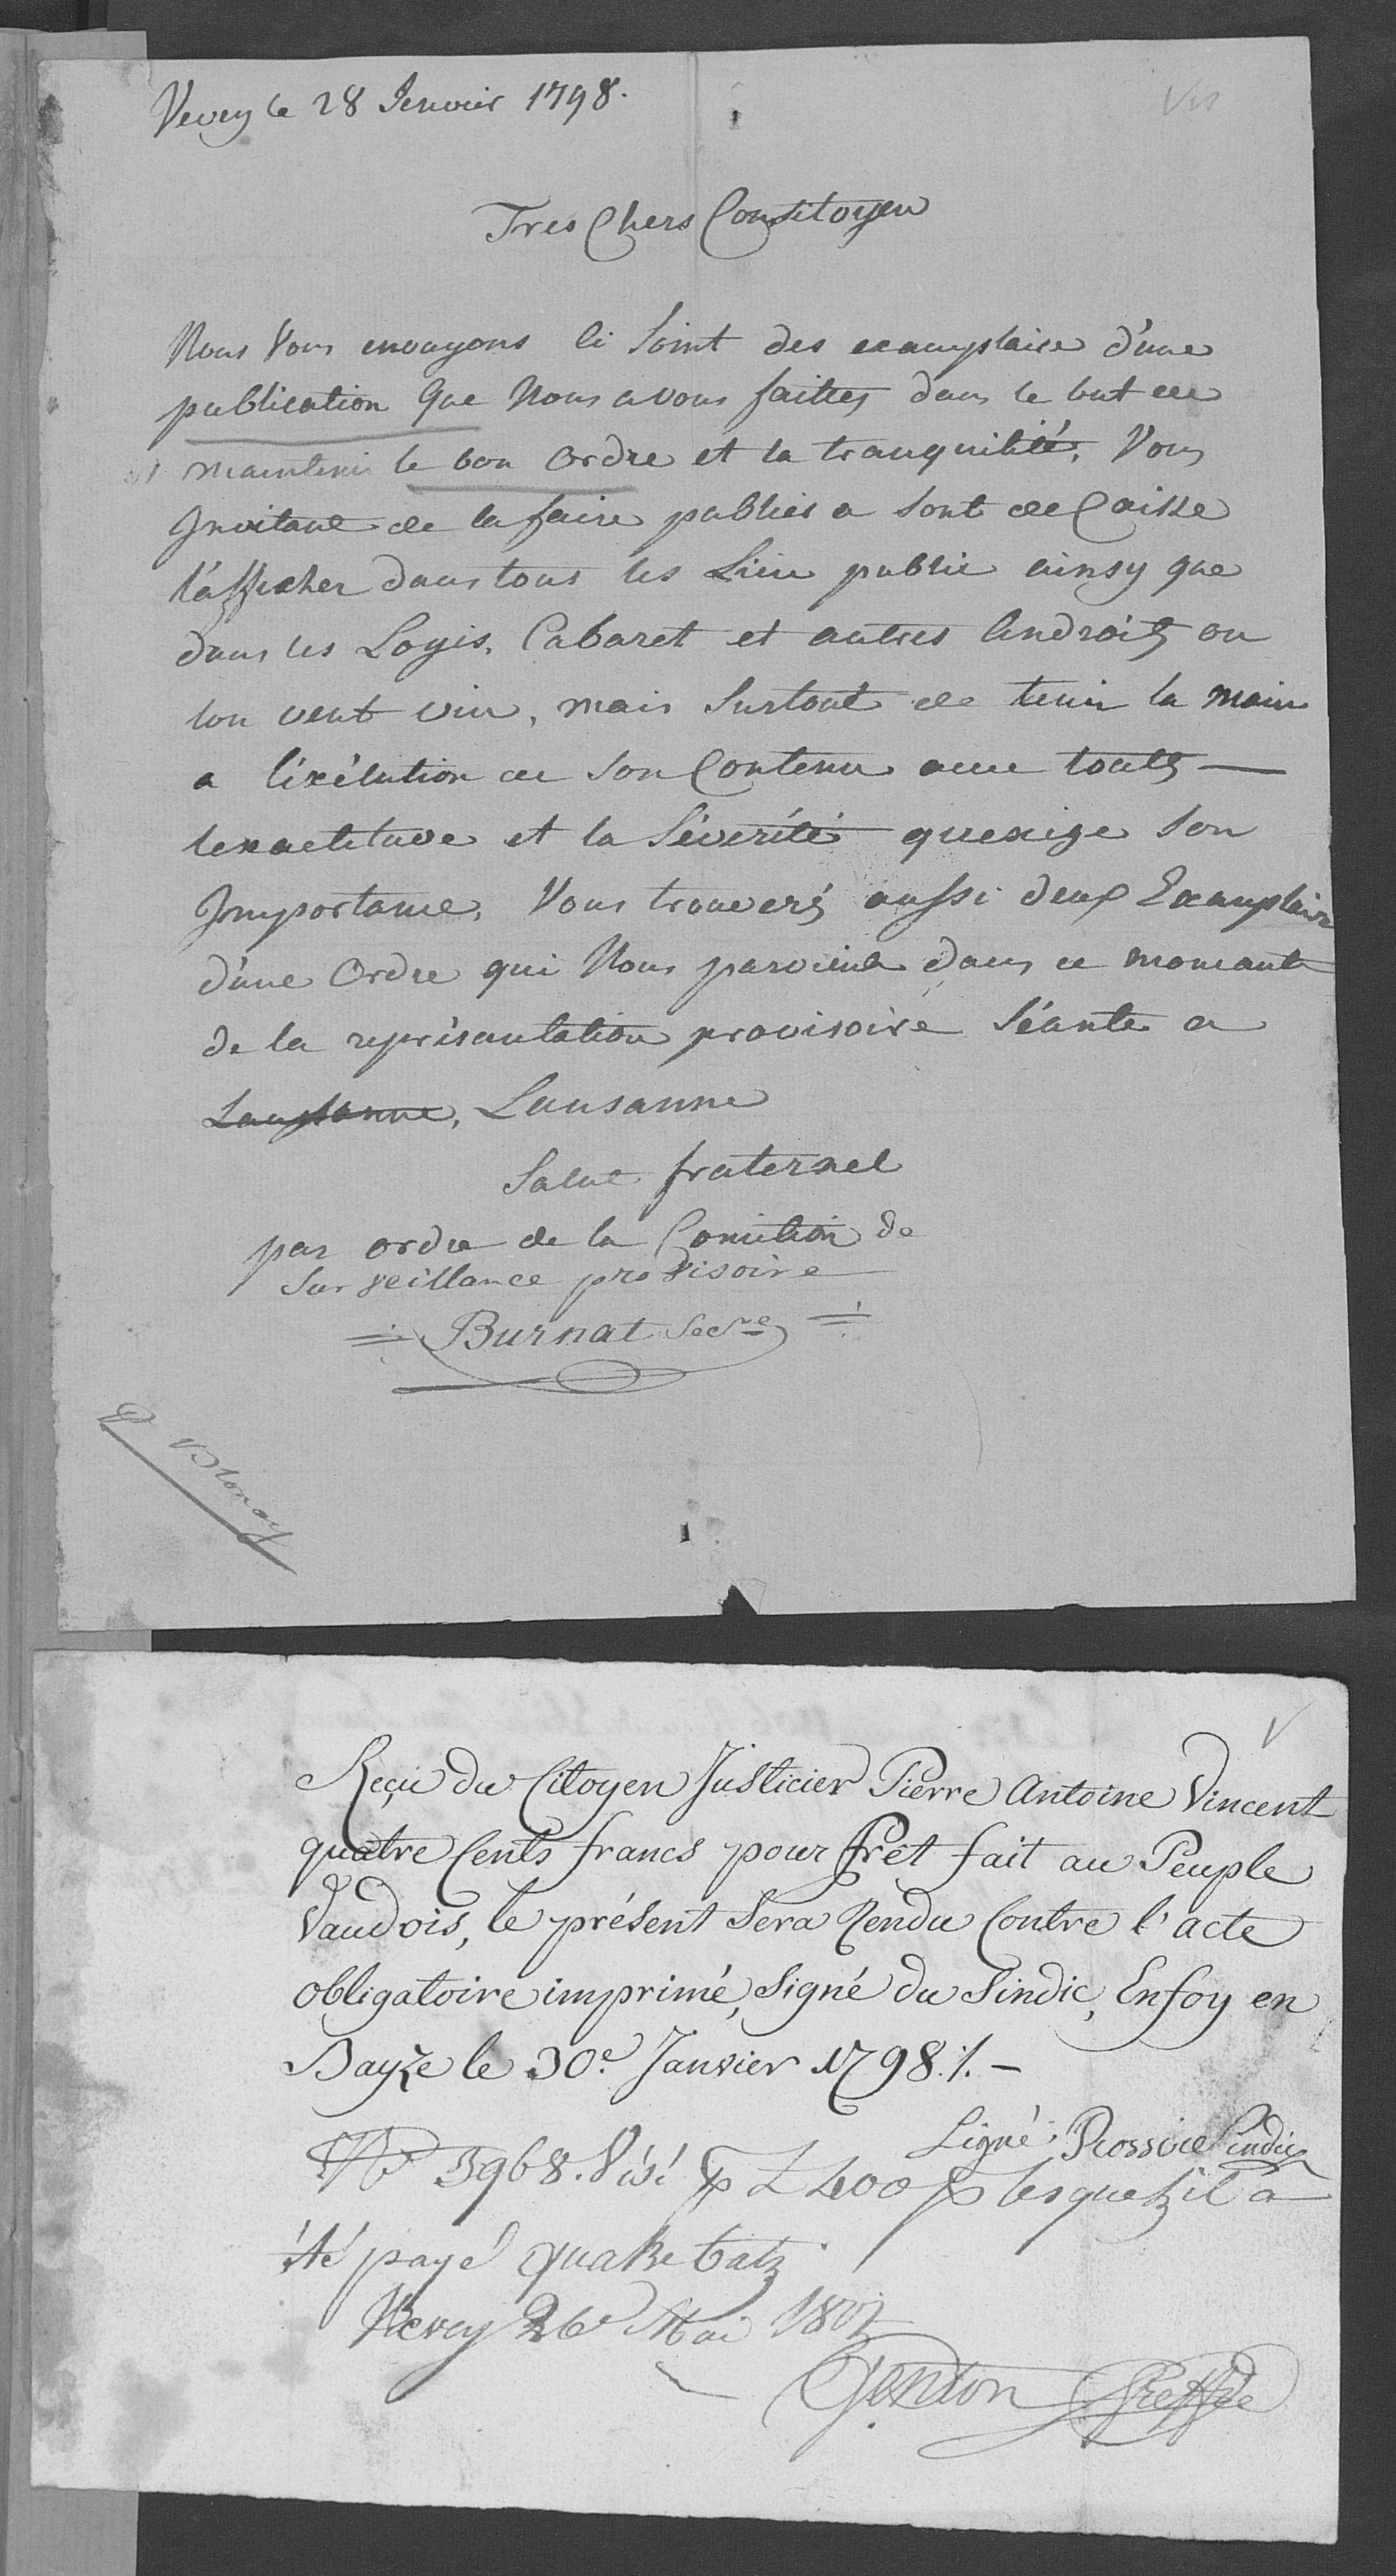 Vevey le 28 Jenvier 1798.
Tres Chers Consitoyen
Nous Vous envoyons ci Joint des examplaire d'une
publication que Nous avons faittes dans le but de
maintenir le bon Ordre et la tranquilité, Vous
Invitant de la faire publier a sont de Caisse
l'afficher dans tous les Lieu public ainsy que
dans les Logis, Cabaret et autres Androits ou
lon vent vin, mais Surtout de tenir la main
a l'éxécution de son Contenu avec toutes
lexactitude et la Sévérité quexige son
Importance, Vous trouverés aussi deux Examplaire
d'une Ordre qui Nous parvient dans ce momant
de la représantation provisoire Séante a
Laussanne, Lausanne
Salut fraternel
par ordre de la Comition de
Surveillance provisoire
Burnat Secre
Blonay
Reçu du Citoyen Justicier Pierre Antoine Vincent
quatre Cents francs pour Prêt fait au Peuple
Vaudois, le présent Sera Rendu Contre l'acte
obligatoire imprimé, Signé du Sindic, Enfoy en
le 30e. Janvier 1798 ./. -
Signé: Sindic
No 3968. Visé p L 400 p lesquels il a
été payé quatre batz
Vevey 26e Mai
Genton Greffe